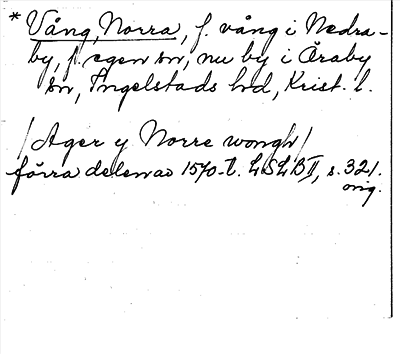 * Vång, Norra, f. vång i Nedra-
by, f. egen sn, nu by i Öraby
sn, Ingelstads hd, Krist. l.
/Ager y Norre wongh/
förra delen av 1570-t. LSLB II, s. 321.
orig.